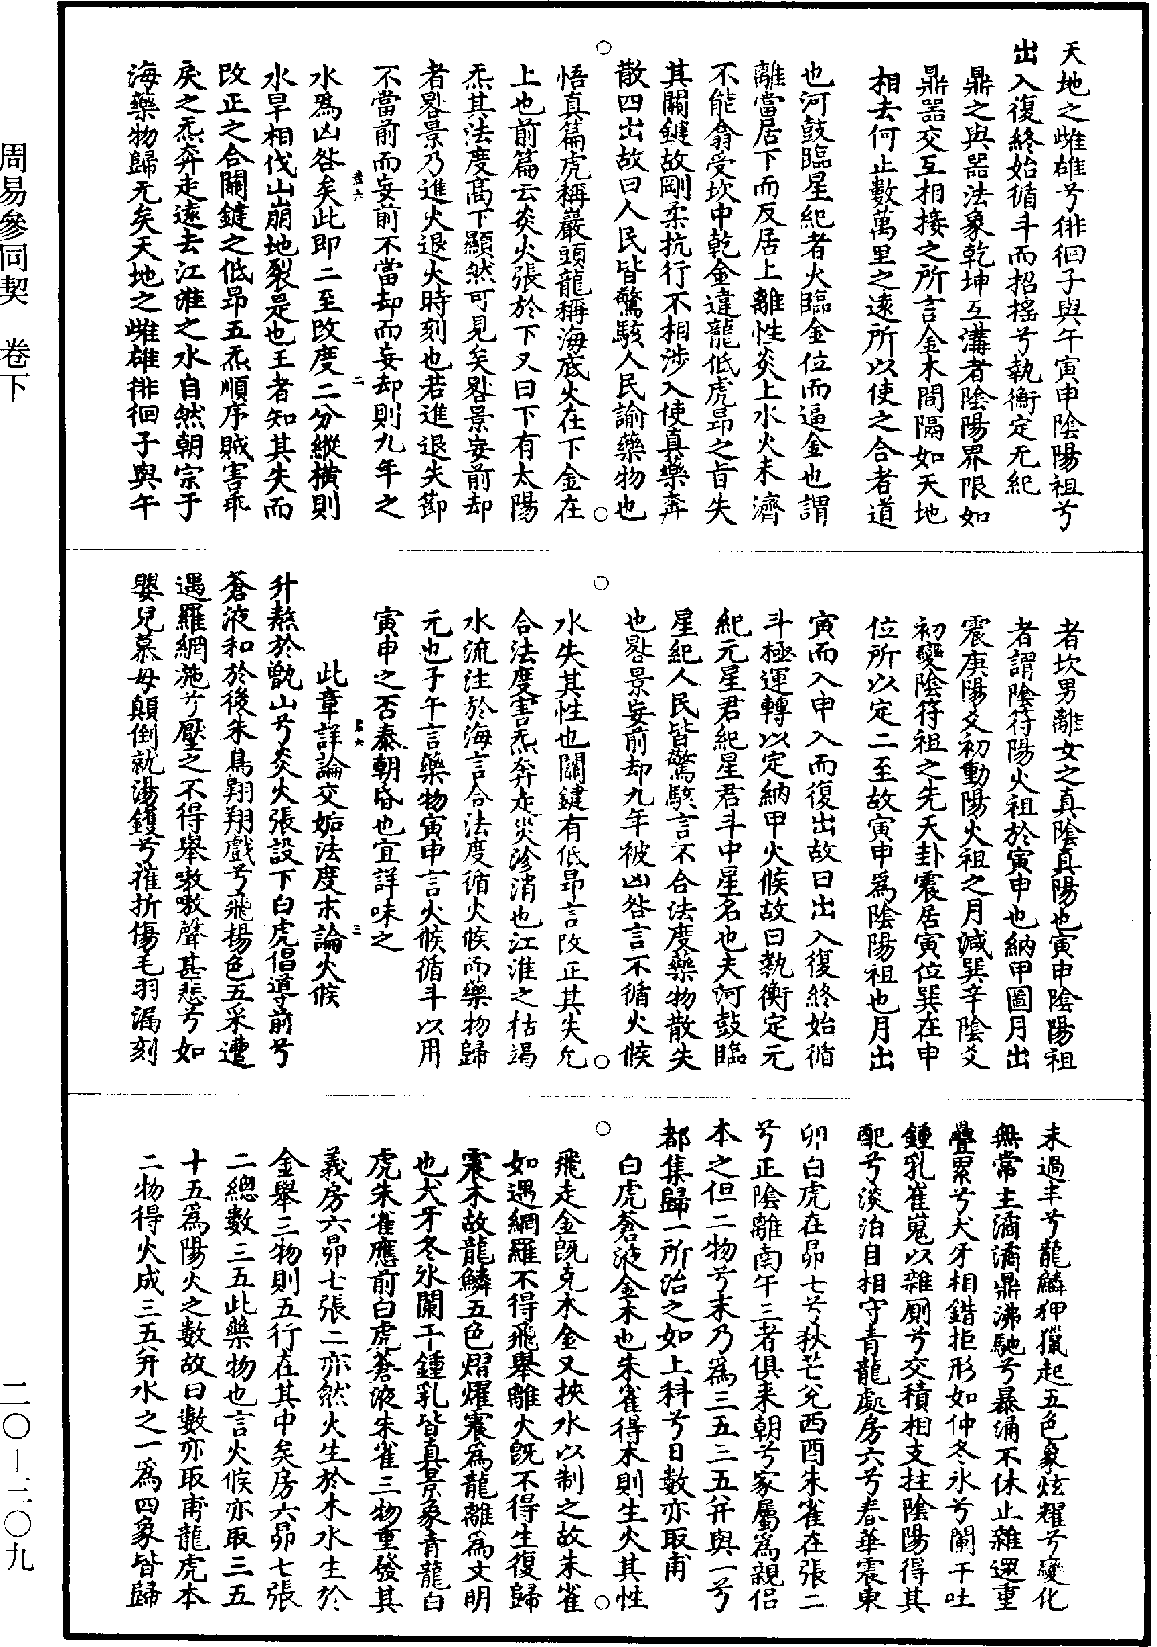 天地之雌雄兮徘徊子與午寅申陰陽祖兮
出入復終始循斗而招搖兮執衡定元紀
鼎之與器法象乾坤互溝者陰陽界限如
鼎器交互相接之所言金木間隔如天地
相去何止數萬里之遠所以使之合者道
也河鼓臨星紀者火臨金位而逼金也謂
離當居下而反居上離性炎上水火未濟
不能翕受坎中乾金違龍低虎昂之旨失
其關鍵故剛柔抗行不相涉入使真藥奔
散四出故曰人民皆驚駭人民諭藥物也
悟真篇虎稱巖頭龍稱海底火在下金在
上也前篇云炎火張於下又曰下有太陽
炁其法度高下顯然可見矣晷景妄前却
者晷景乃進火退火時刻也若進退失節
不當前而妄前不當却而妄却則九年之
水爲凶咎矣此即二至改度二分縱橫則
水旱相伐山崩地裂是也王者知其失而
改正之合關鍵之低昂五炁順序賊害乖
戾之炁奔走遠去江淮之水自然朝宗于
海藥物歸元矣天地之雌雄徘徊子與午
者坎男離女之真陰真陽也寅申陰陽祖
者謂陰符陽火祖於寅申也納甲圖月出
震庚陽爻初動陽火祖之月減巽辛陰爻
初變陰符祖之先天卦震居寅位巽在申
位所以定二至故寅申爲陰陽祖也月出
寅而入申入而復出故曰出入復終始循
斗極運轉以定納甲火候故曰執衡定元
紀元星君紀星君斗中星名也夫河鼓臨
星紀人民皆驚駭言不合法度藥物散失
也晷景妄前却九年被凶咎言不循火候
水失其性也關鍵有低昂言改正其失允
合法度害炁奔走災沴消也江淮之枯竭
水流注於海言合法度循火候而藥物歸
元也子午言藥物寅申言火候循斗以用
寅申之否泰朝昏也宜詳味之
此章詳論交姤法度末論火候
升熬於甑山兮炎火張設下白虎倡導前兮
蒼液和於後朱鳥翱翔戲兮飛揚色五采遭
遇羅網施兮壓之不得舉嗷嗷聲甚悲兮如
嬰兒慕母顛倒就湯鑊兮摧折傷毛羽漏刻
未過半兮龍鱗狎獵起五色象炫耀兮變化
無常主潏潏鼎沸馳兮暴涌不休止雜遝重
疊累兮犬牙相錯拒形如仲冬冰兮闌干吐
鍾乳崔嵬以雜厠兮交積相支拄陰陽得其
配兮淡泊自相守青龍處房六兮春華震東
卯白虎在昴七兮秋芒兌西酉朱雀在張二
兮正陰離南午三者俱來朝兮家屬爲親侣
本之但二物兮末乃爲三五三五并與一兮
都集歸一所治之如上科兮日數亦取甫
白虎蒼液金木也朱雀得木則生火其性
飛走金既克木金又挾水以制之故朱雀
如遇網羅不得飛舉離火既不得生復歸
震木故龍鱗五色熠燿震爲龍離爲文明
也犬牙冬冰闌干鍾乳皆真景象青龍白
虎朱雀應前白虎蒼液朱雀三物重發其
義房六昴七張二亦然火生於木水生於
金舉三物則五行在其中矣房六昴七張
二總數三五此藥物也言火候亦取三五
十五爲陽火之數故曰數亦取甫龍虎本
二物得火成三五并水之一爲四象皆歸
周易參同契 卷下
二〇—二〇九